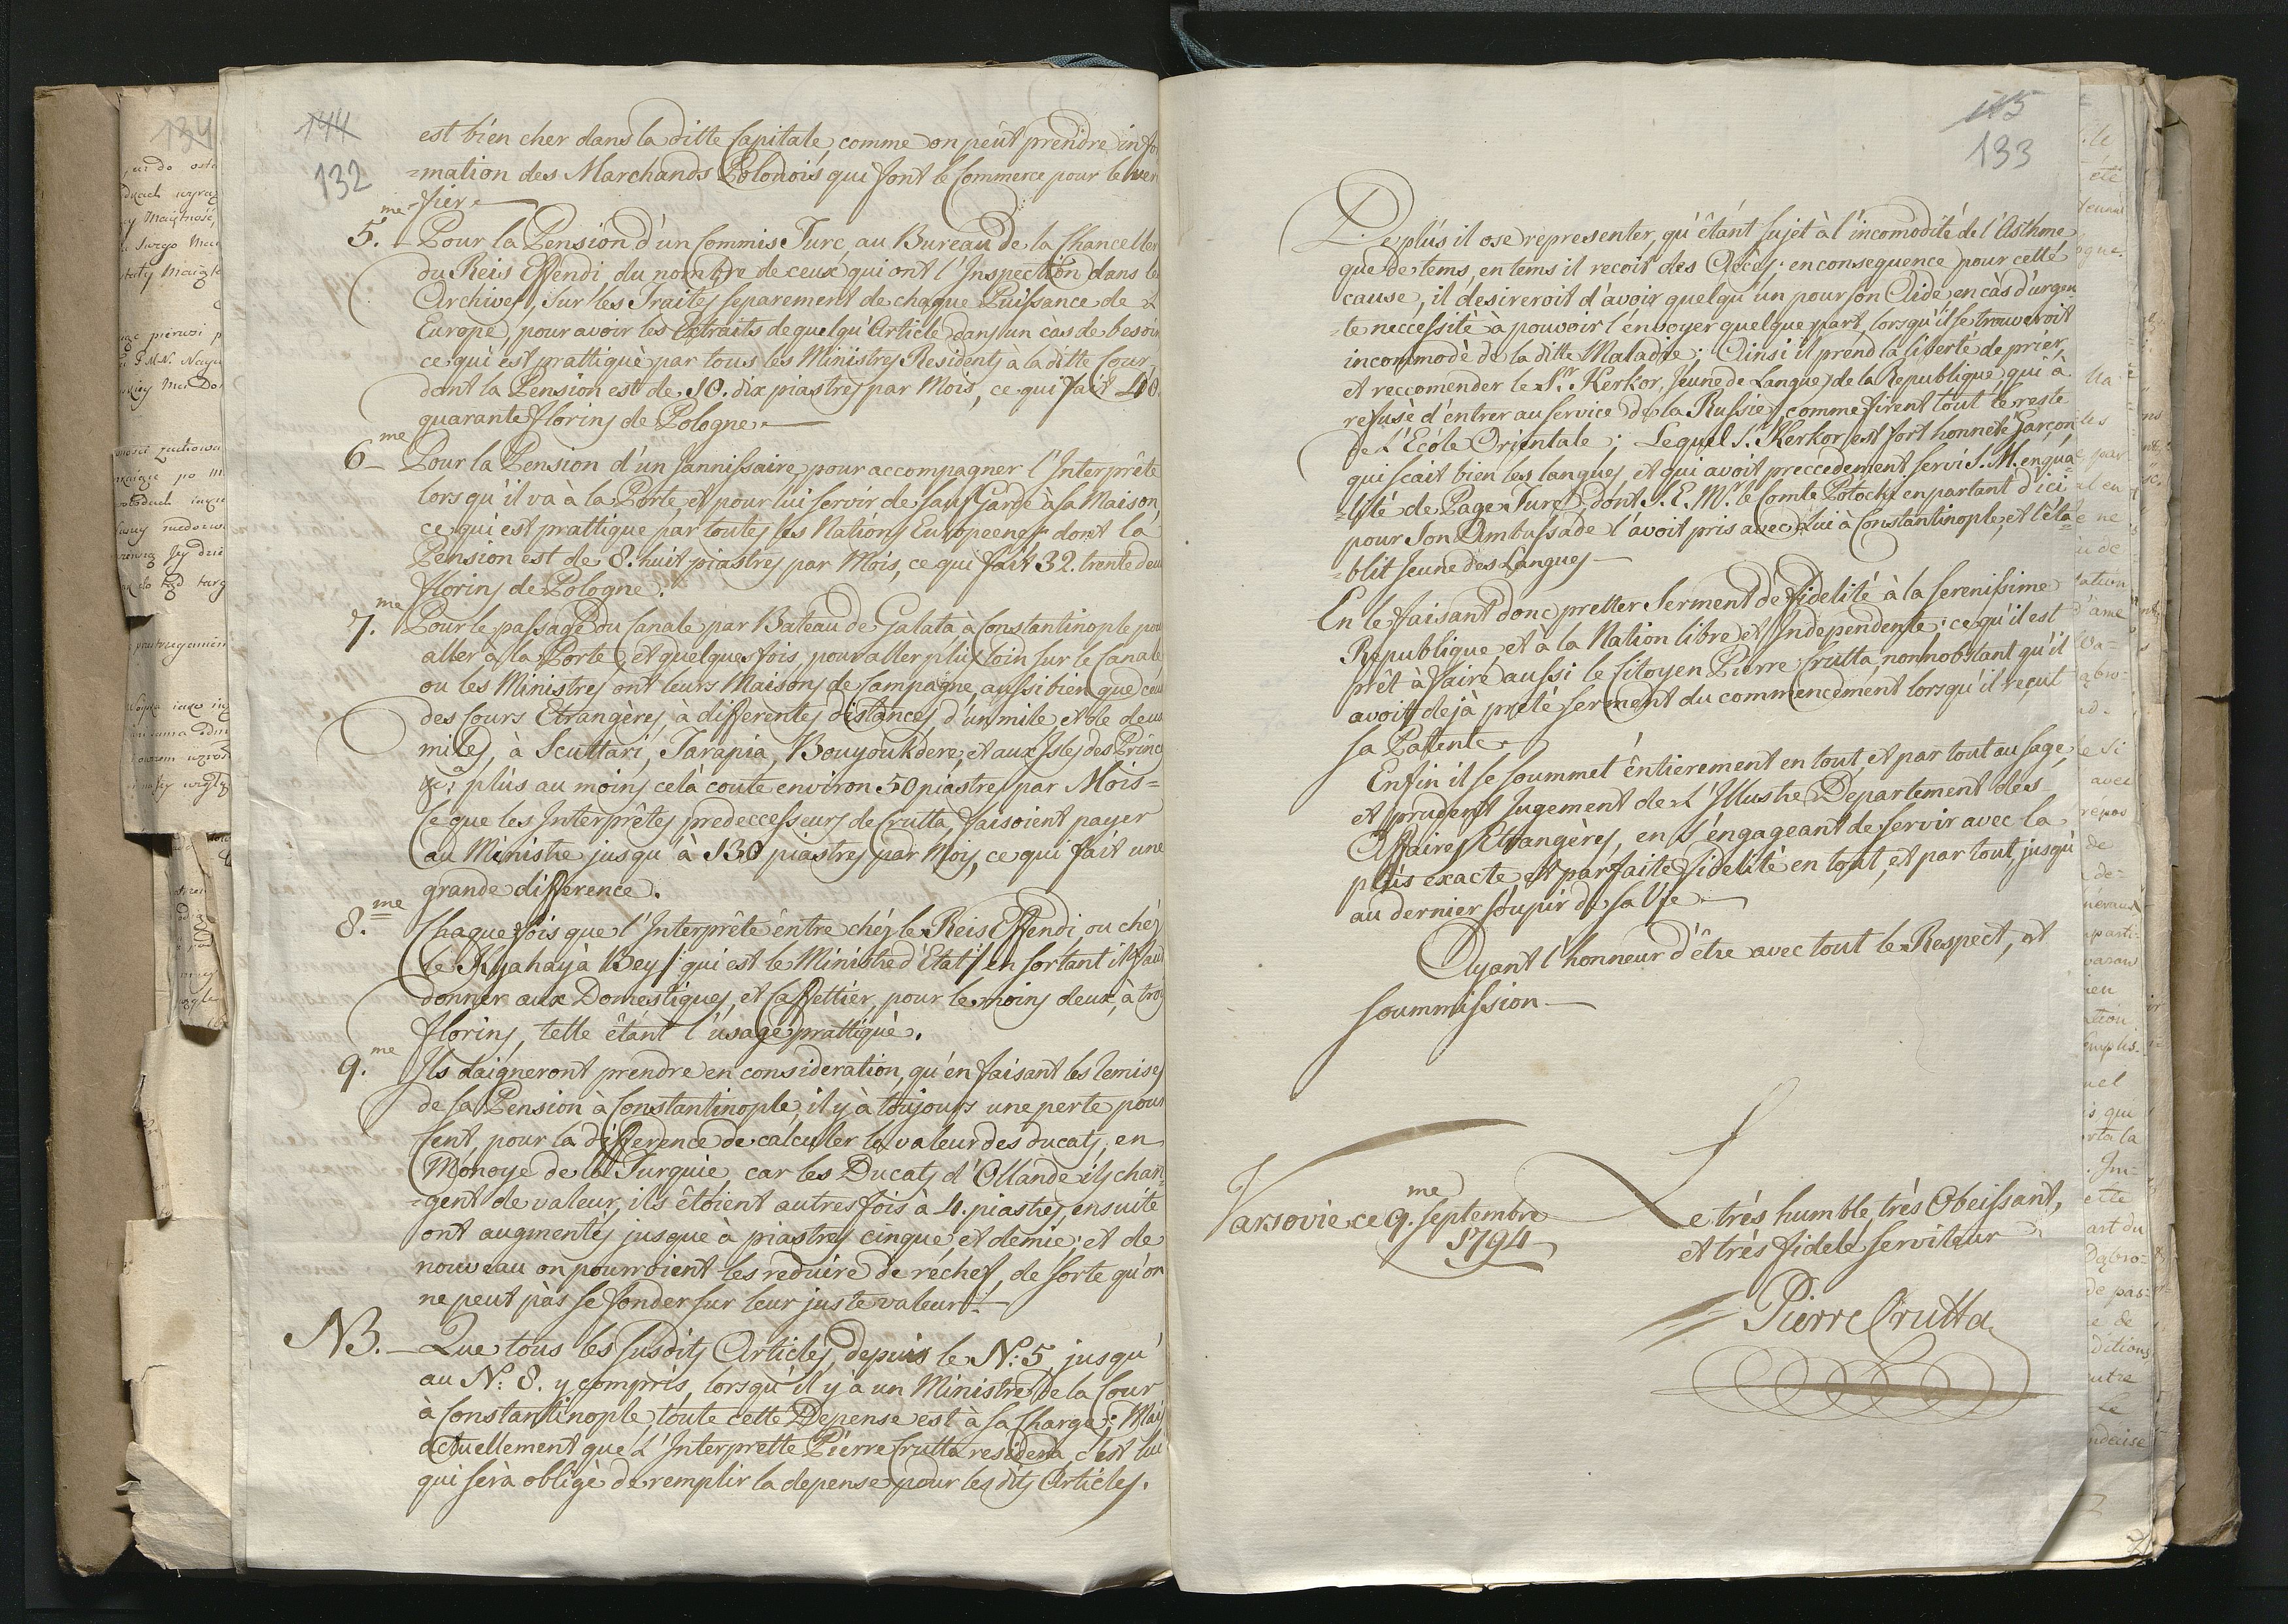 144
132
est bien cher dans la ditte Capitale, comme on peut prendre info
=mation des Marchands Polonois qui font le Commerce pour le veri
=fier.
5.me Pour la Pension d'un Commis Turc, au Bureau de la Chancelle
du Reis Effendi du nombre de ceux qui ont l'Inspection dans le
Archives, sur les Traites separement de chaque Puissance de L
Europe, pour avoir les Extraits de quelqu'Article dans un càs de besoin
ce qui est prattiquè par tous les Ministres Residents à la ditte Cour,
dont la Pension est de 10. dix piastres par Mois, ce qui fait 40.
quarante florins de Pologne.
6me Pour la Pension d'un Jannissaire, pour accompagner l'Interprête
lorsqu'il và à la Porte, et pour lui servir de Sauf Garde à sa Maison,
ce qui est prattique par toutes les Nations Europeenes, dont la
Pension est de 8. huit piastres par Mois, ce qui fait 32. trente deu
florins de Pologne.
7.me Pour le passage du Canale par Bateau de Galata à Constantinople pou
aller à la Porte, et quelques fois, pour aller plus loin sur le Canale
ou les Ministres ont leurs Maisons de Campagne, aussi bien que ceu
des Cours Etrangères à differentes distances d'un mile et de deux
miles, à Scuttari, Tarapia, Bouyoukdere, et aux Isles des Princ
&ca; plus au moins celà coute environ 50 piastres par Mois=
Ce que les Interprêtes predeccesseurs de Crutta, faisoient payer
au Ministre jusqu'à 130 piastres par Mois, ce qui fait une
grande difference.
8.me Chaque fois que l'Interprête entre chéz le Reis Effendi ou chéz
le Kyahaya Bey /: qui est le Ministre d'Etat :/ en sortant il faut
donner aux Domestiques, et Caffettier, pour le moins deux, à troi
florins, telle étant l'usage prattiquè.
9.me Ils daigneront prendre en consideration, qu'en faisant les remises
de sa Pension à Constantinople, il y à toujours une perte pour
Cent, pour la difference de calculer la valeur des ducats, en
Monoye de la Turquie, car les Ducats d'Ollande ils chan=
=gent de valeur, ils étoient autres fois à 4. piastres, ensuite
ont augmentés jusque à piastres cinque et demie, et de
nouveau on pourroient les reduire de réchef, de sorte qu'on
ne peut pàs se fonder sur leur juste valeur.
NB. Que tous les susdits Articles, depuis le N: 5, jusqu'
au N: 8. y compris, lorsqu'il y'a un Ministre de la Cour
à Constantinople, toute cette Depense est à sa Charge; Mais
actuellement que L'Interprette Pierre Crutta residera, c'est lui
qui serà obligè de remplir la depense pour les dits Articles.
115
133
De plus il ose representer, qu'étant sujet à l'incomodité de l'Asthme
que de tems, en tems il recoit des Accès; en consequence pour cetté
cause, il desireroit d'avoir quelqu'un pour son Aide, en càs d'urgen
=te neccéssitè à pouvoir l'envoyer quelque part, lorsqu'il se trouveroit
incommodè de la ditte Maladie; Ainsi il prend la liberté de prier,
et reccomender le Sr. Kerkor, Jeune de Langues de la Republique, qui à
refusè d'entrer au service de la Russie, comme firent tout le reste
de L'Ecole Orientale; Lequel Sr. Kerkor est fort honnete Garçon
qui scait bien les langues, et qui avoit preccedement servi S. M. en qua
=lité de Page Turc, dont S. E. Mr. le Comte Potocki en partant d'ici
pour Son Ambassade l'avoit pris avec Lui à Constantinople, et l'éta=
=blit Jeune des Langues.
En le faisant donc pretter Serment de fidelité à la Serenissime
Republique, et à la Nation libre et Independente; ce qu'il est
prêt à faire aussi le Citoyen Pierre Crutta, nonnobstant qu'il
avoit dejà prété serment du commencement lorsqu'il reçut
sa Patente.
Enfin il se soummet êntierement en tout, et par tout au sage,
et prudent Jugement de L'Illustre Departement des
Affaires Etrangères, en S'engageant de servir avec la
plus exacte, et parfaite fidelité en tout, et par tout, jusqu'
au dernier soupir de sa Vie.
Ayant l'honneur d'être avec tout le Respect, et
soummission
Varsovie ce 9.me Septembre
1794
Le très humble, très Obeissant,
et très fidele serviteur
Pierre Crutta